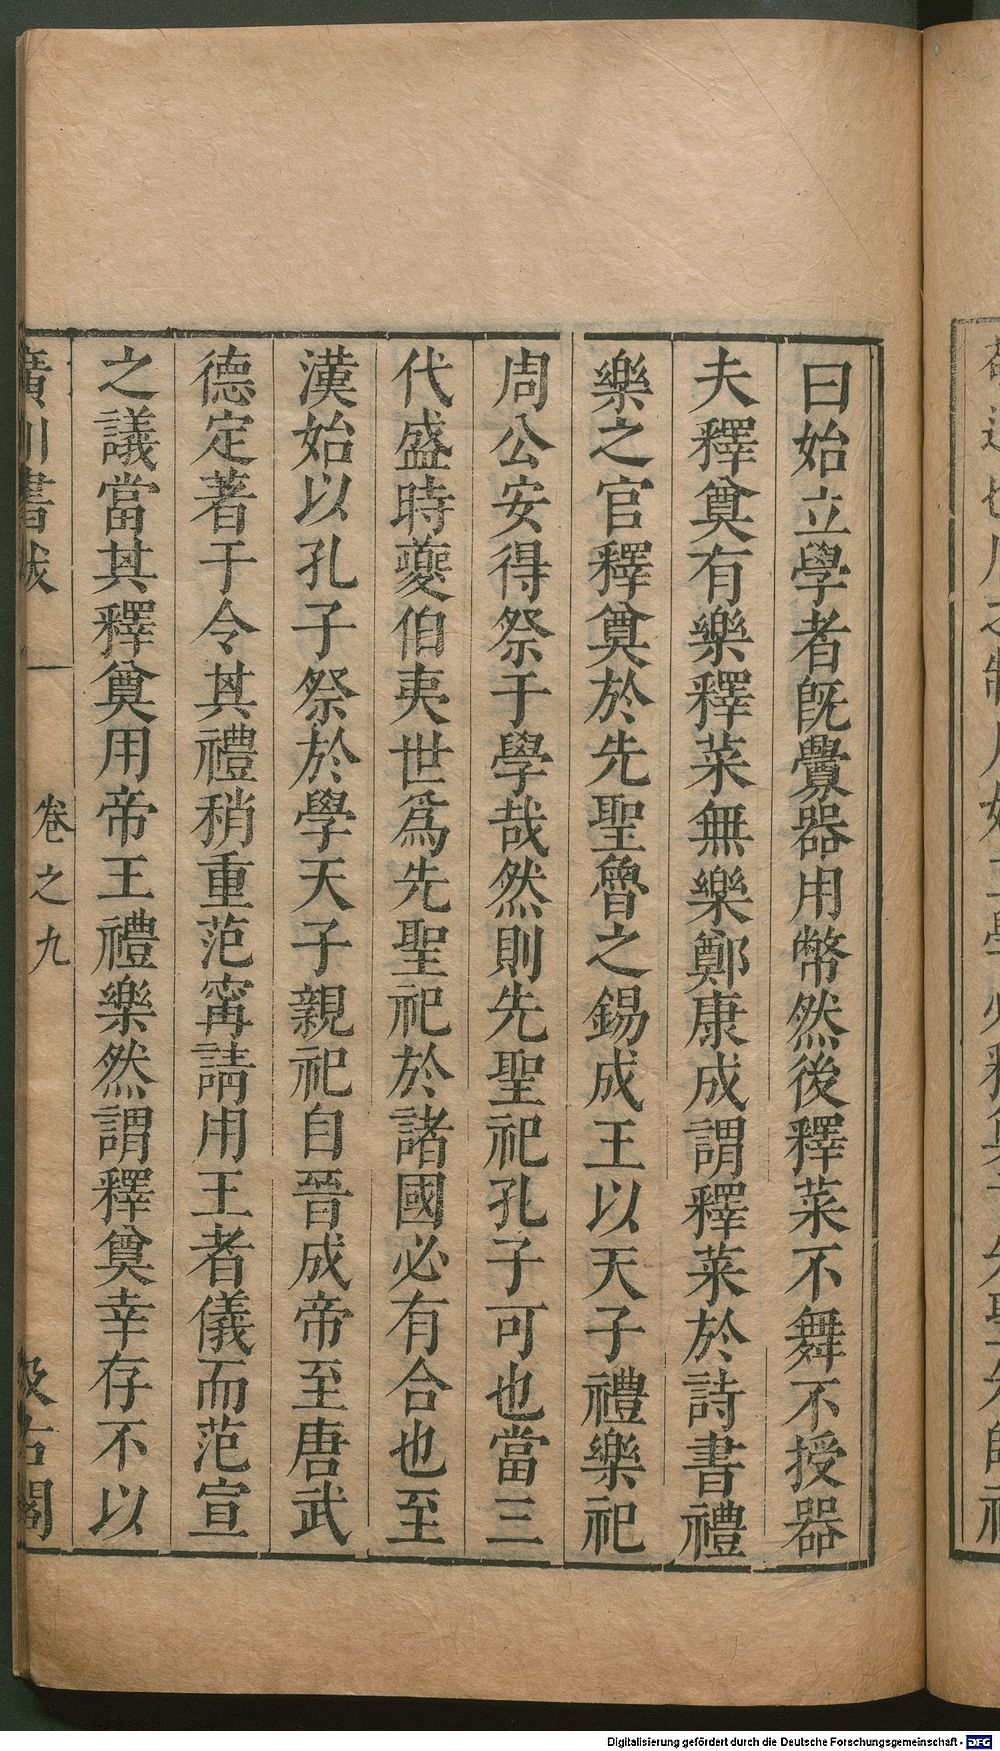 曰始立學者旣釁器用幣然後釋菜不舞不授器
夫釋奠有樂釋菜無樂鄭康成謂釋菜於詩書禮
樂之官釋奠於先聖魯之錫成王以天子禮樂祀
周公安得祭于學哉然則先聖祀孔子可也當三
代盛時夔伯夷世爲先聖祀於諸國必有合也至
漢始以孔子祭於學天子親祀自晉成帝至唐武
德定著于令其禮稍重范甯請用王者儀而范宣
之議當其釋奠用帝王禮樂然謂釋奠幸存不以
廣川書跋 卷之九 汲古閣
Digitalisierung gefördert durch die Deutsche Forschungsgemeinschaft - DFG